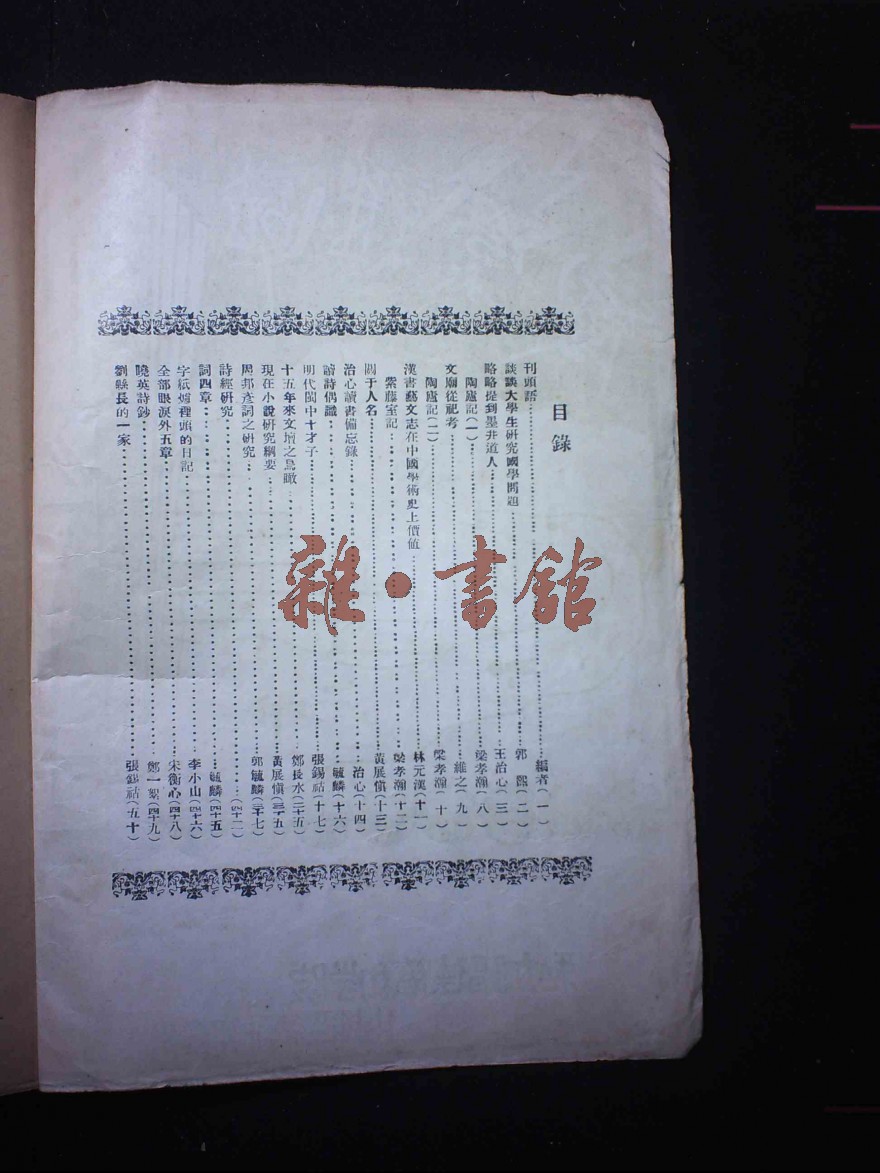 目錄
刊頭話……編者（一）
談談大學生研究國學問題……郭熙（二）
略略提到墨井道人……王治心（三）
陶廬記（一）……梁孝瀚（八）
文廟從祀考……維之（九）
陶廬記（二）……梁孝瀚（十）
漢書藝文志在中國學術史上價值……林元漢（十一）
紫藤室記……梁孝瀚（十二）
關于人名……黃展愼（十三）
治心讀書備忘錄……治心（十四）
讀詩偶識……毓麟（十六）
明代閩中十才子……張錫祜（十七）
十五年來文壇之鳥瞰……鄭長水（二十五）
現在小說研究綱要……黃展愼（三十五）
周邦彥詞之研究……郭毓麟（三十七）
詩經研究……（四十二）
詞四章……毓麟（四十五）
字紙爐裡頭的日記……李小山（四十六）
全部眼淚外五章……宋衡心（四十八）
曉英詩鈔……鄭一絮（四十九）
劉縣長的一家……張錫祜（五十）
雜·書館